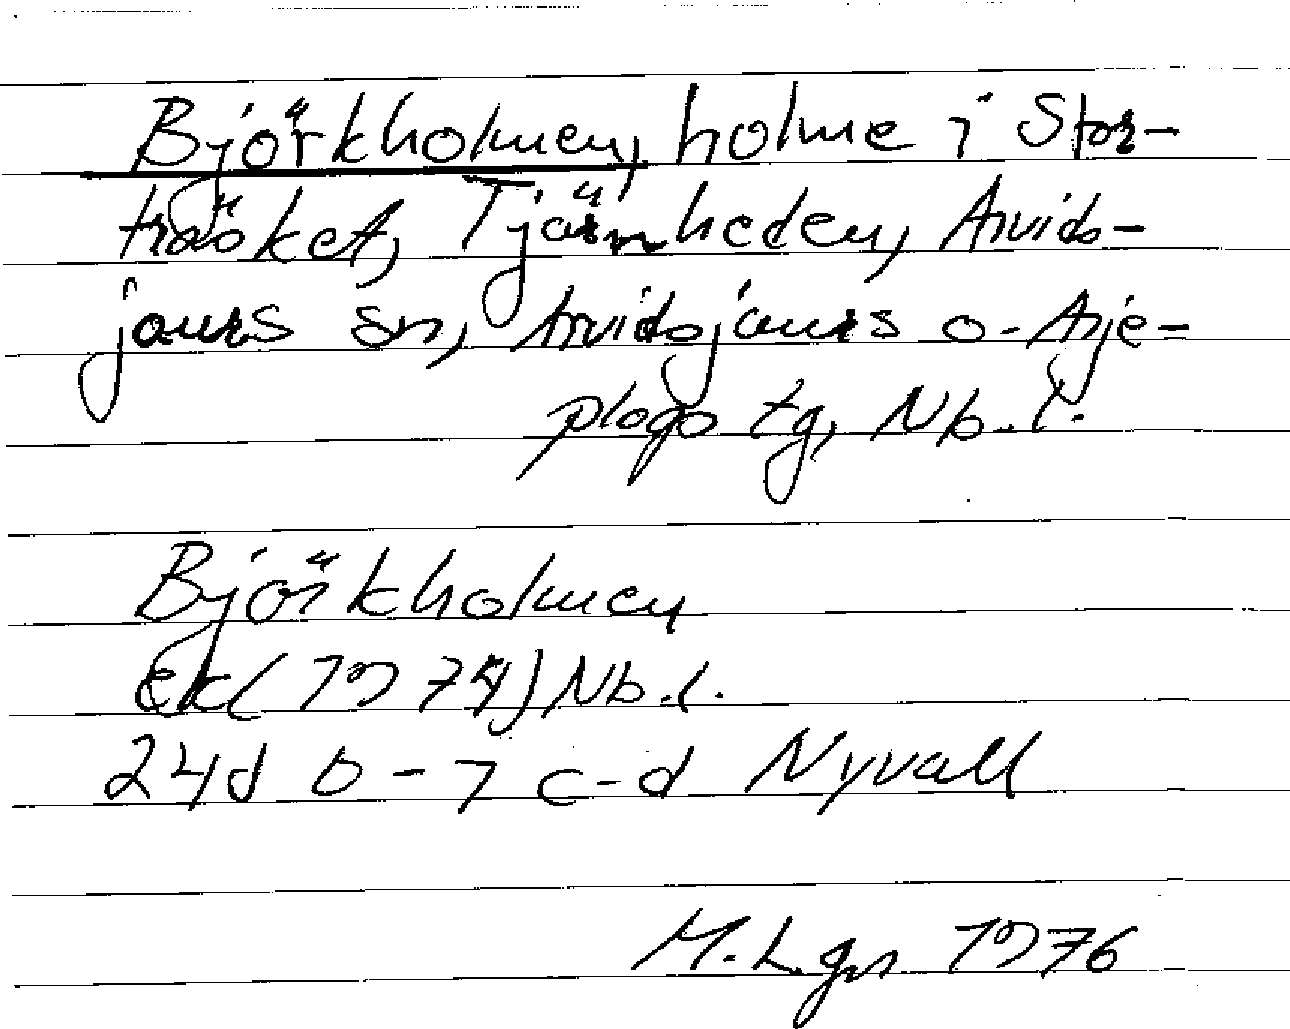 Björkholmen, holme i Stor-
träsket, Tjärnheden, Arvids-
jaurs sn, Arvidsjaurs o. Arje-
plogs tg, Nb.l.
Björkholmen
Ek (1974) Nb.l.
24d 0-1 c-d Nyvall
M.Lgn 1976